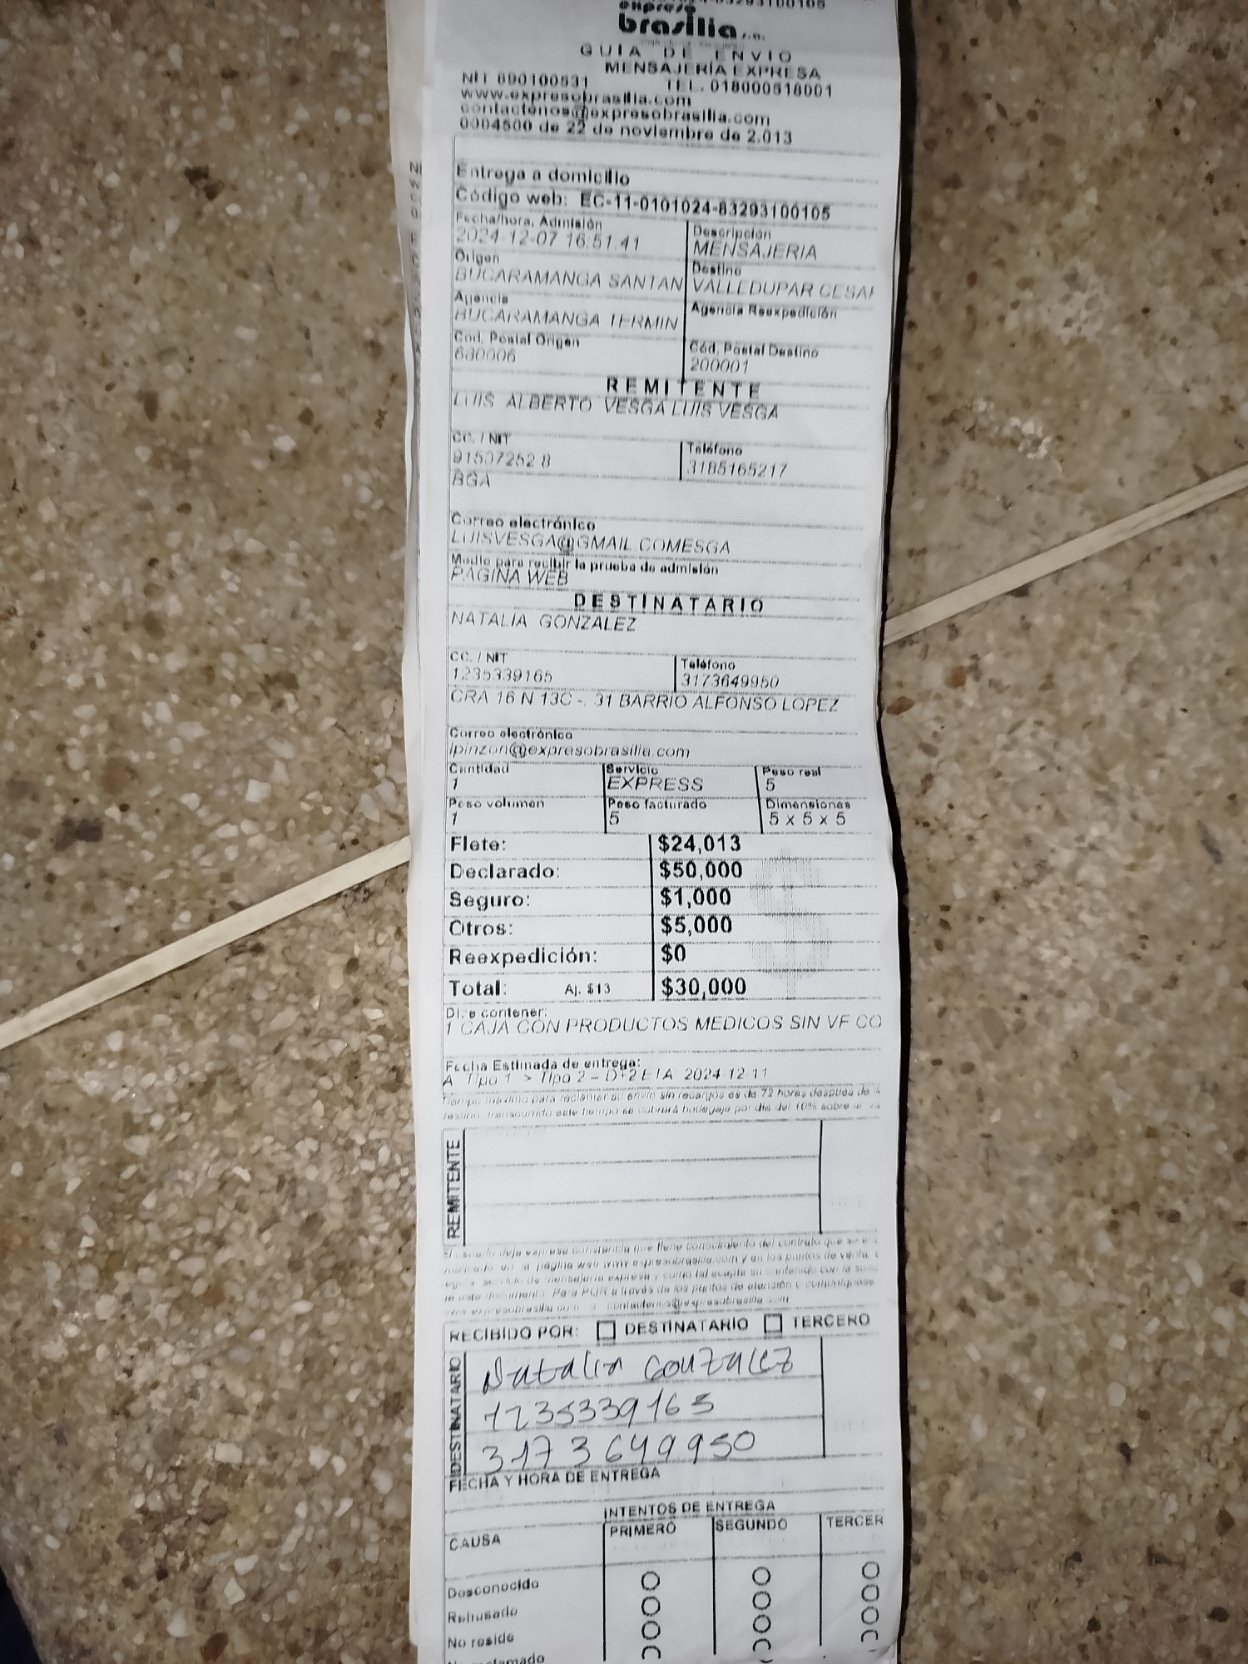 expreso
brasilia s.a.
GUIA DE ENVIO
MENSAJERÍA EXPRESA
NIT 890100531 TEL. 018000518001
www.expresobrasilia.com
contactenos@expresobrasilia.com
0004500 de 22 de noviembre de 2.013
Entrega a domicilio
Código web: EC-11-0101024-83293100105
Fecha/hora, Admisión Descripción
2024-12-07 16:51:41 MENSAJERIA
Origen Destino
BUCARAMANGA SANTAN VALLEDUPAR CESAR
Agencia Agencia Reexpedición
BUCARAMANGA TERMIN
Cod. Postal Origen Cód. Postal Destino
680006 200001
REMITENTE
LUIS ALBERTO VESGA LUIS VESGA
CC. / NIT Teléfono
91537252 8 3185165217
BGA
Correo electrónico
LUISVESGA@GMAIL.COMESGA
Medio para recibir la prueba de admisión
PAGINA WEB
DESTINATARIO
NATALIA GONZALEZ
CC. / NIT Teléfono
1235339165 3173649950
CRA 16 N 13C -. 31 BARRIO ALFONSO LOPEZ
Correo electrónico
lpinzon@expresobrasilia.com
Cantidad Servicio Peso real
1 EXPRESS 5
Peso volumen Peso facturado Dimensiones
1 5 5 x 5 x 5
Flete: $24,013
Declarado: $50,000
Seguro: $1,000
Otros: $5,000
Reexpedición: $0
Total: Aj. $13 $30,000
Dice contener:
1 CAJA CON PRODUCTOS MEDICOS SIN VF CO
Fecha Estimada de entrega:
A Tipo 1 > Tipo 2 - D+2 ETA: 2024-12-11
Tiempo máximo para reclamar su envío sin recargos es de 72 horas después de
transcurrido este tiempo se cobrará bodegaje por día del 10% sobre
REMITENTE
deja expresa constancia que tiene conocimiento del contrato que se
en la página web www.expresobrasilia.com y en los puntos de venta,
servicio de mensajería expresa y como tal acepta su contenido con la
este documento. Para PQR a través de los puntos de atención
contactenos@expresobrasilia.com
RECIBIDO POR: DESTINATARIO TERCERO
DESTINATARIO
Natalia Gonzalez
1235339165
3173649950
FECHA Y HORA DE ENTREGA
INTENTOS DE ENTREGA
CAUSA PRIMERO SEGUNDO TERCER
Desconocido
Rehusado
No reside